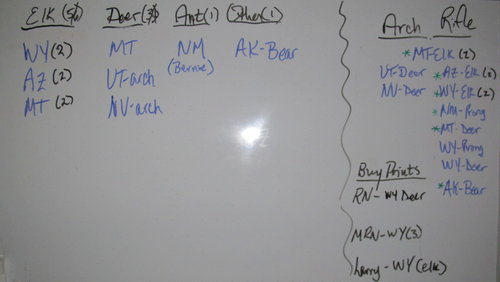 ELK Deer Ant(1) Other(1)
WY(2) MT NM AK-Bear
(Bernie)
AZ(2) UT-arch
MT(2) NV-arch
Arch Rifle
*MT-Elk(2)
UT-Deer *AZ-Elk(2)
NV-Deer *WY-Elk(2)
*NM-Prong
*MT-Deer
WY-Prong
WY-Deer
*AK-Bear
Buy Points
RN-WY Deer
MRN-WY(3)
Larry-WY(elk)